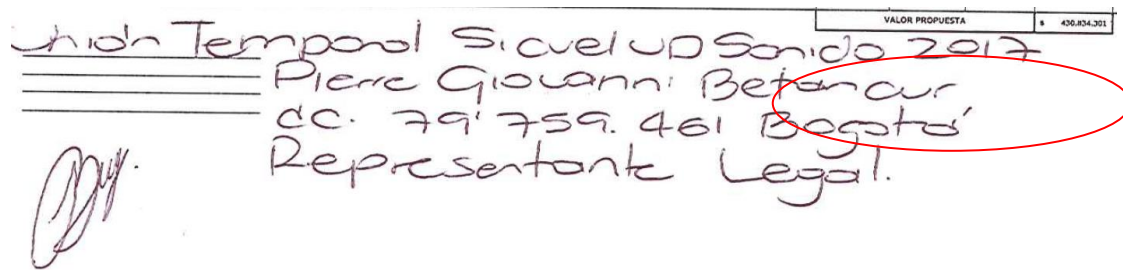 VALOR PROPUESTA $ 430.834.301
Unión Temporal Sicuel UD Sonido 2017
Pierre Giovanni Betancur
cc. 79'759.461 Bogotá
Representante Legal.